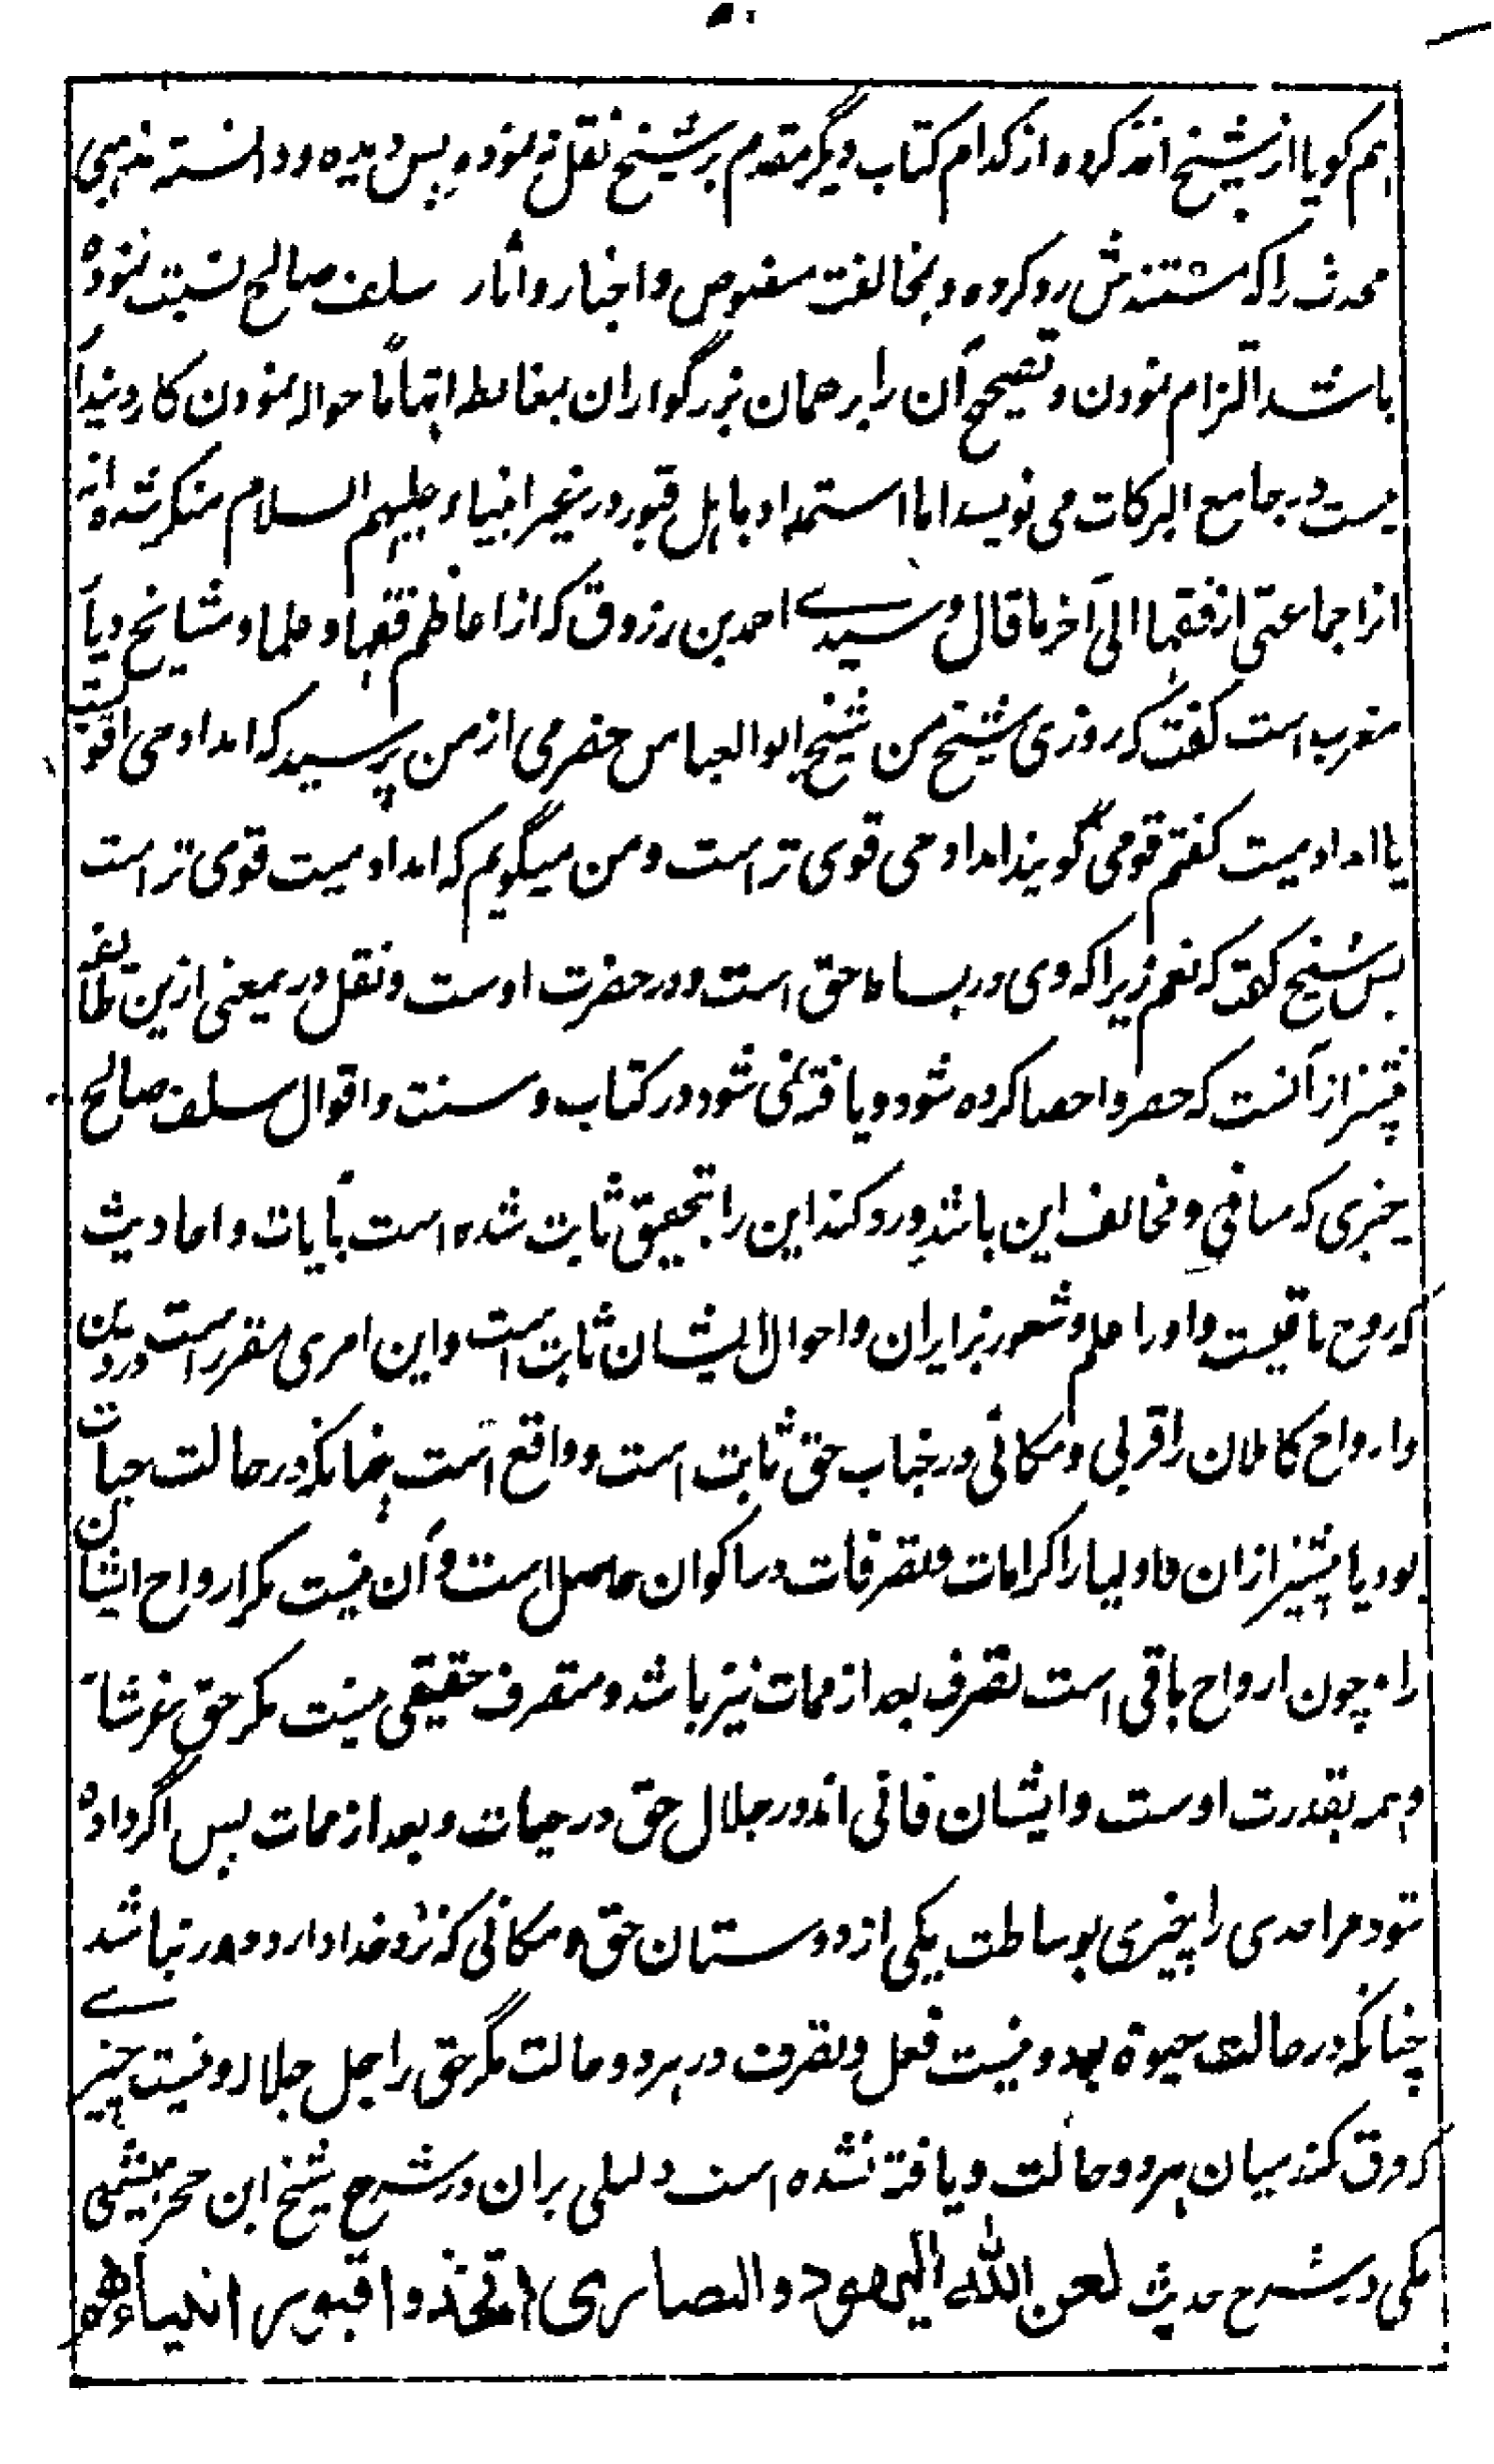 هم کویا از شیخ اخذ کرده از کدام کتاب دیگر مقدم بر شیخ نقل نموده پس دیده و دانسته مذهبی
محدث را که مستندش رد کرده و بمخالفت منصوص و اخبار و اثار سلف صالح نسبت نموده
باشد التزام نمودن و تصحیح آن را بر همان بزرگواران بمغالطه اتهاماً حوالہ نمودن کار دیندا
نیست در جامع البرکات می نویسد اما استمداد باہل قبور در غیر انبیاء علیہم السلام منکر شده اند
انرا جماعتی از فقہا الی آخر ما قال و سیدے احمد بن رزوق که از اعاظم فقہا و علما و مشایخ دیار
مغرب است کفت که روزی شیخ من شیخ ابو العباس حضرمی از من پرسید که امداد حی اقوی است
یا امداد میت کفتم قومی گویند امداد حی قوی تر است و من میگویم که امداد میت قوی تر است
پس شیخ کفت که نعم زیرا که وی در بساط حق است و در حضرت اوست و نقل درینمعنی ازین طائفه
بیشتر از آنست که حصر و احصا کرده شود و یافته نمی شود در کتاب و سنت و اقوال سلف صالح
چیزی که منافی و مخالف این باشد و رد کند این را بتحقیق ثابت شده است بآیات و احادیث
که روح باقیست و او را علم و شعور بزایران و احوال ایشان ثابت است و این امری مقرر است در دین
و ارواح کاملان را قربی و مکانی در جناب حق ثابت است و واقع است چنانکه در حالت حیات
بود یا بیشتر ازان و اولیا را کرامات و تصرفات در اکوان حاصل است و آن نیست مکر ارواح ایشان
را و چون ارواح باقی است تصرف بعد از ممات نیز باشد و متصرف حقیقی نیست مکر حق عز شانہ
و ہمہ بقدرت اوست و ایشان فانی اند در جلال حق در حیات و بعد از ممات پس اگر داده
شود مر احدی را چیزی بوساطت یکی از دوستان حق و مکانی که نزد خدا دارد دور نباشد
چنانکه در حالت حیوة بود و نیست فعل و تصرف در ہر دو حالت مگر حق را جل جلالہ و نیست چیزے
که فرق کند میان ہر دو حالت و یافته نشده است دلیلی بران در شرح شیخ ابن حجر ہیثمی
مکی در شرح حدیث لعن الله الیهود والنصاری اتخذوا قبور انبیاءهم